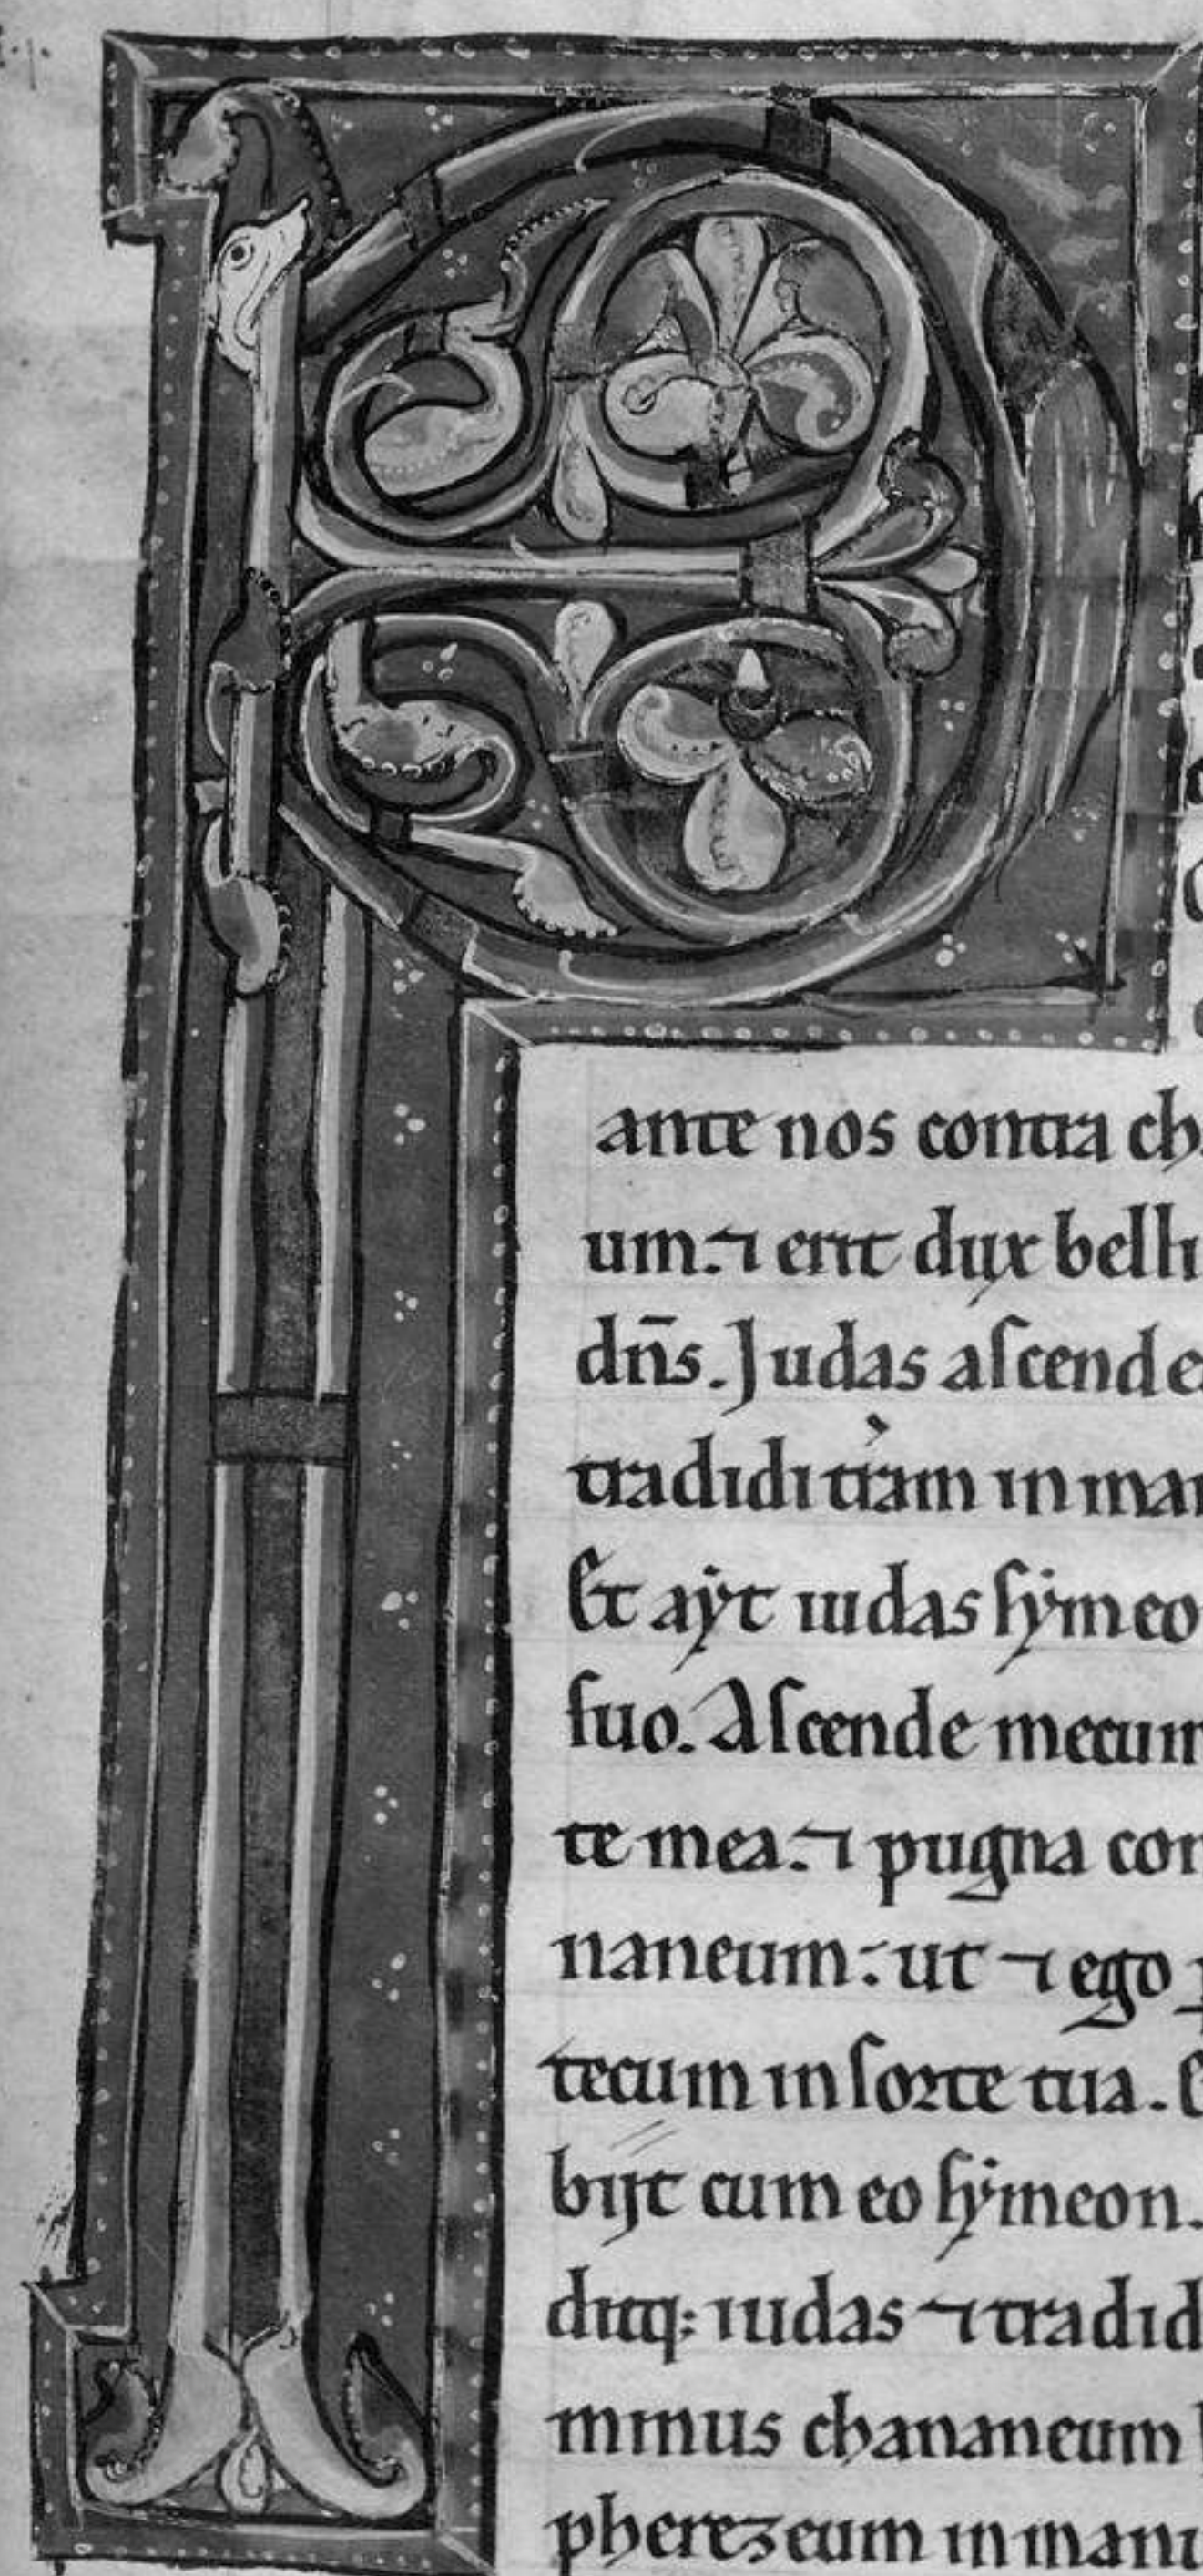 P
ante nos contra ch
um. ⁊ erit dux belli
dn̄s. Judas aſcende
tradidi tr̄am in man
Et aẏt iudas ſẏmeo
ſuo. Aſcende mecum
te mea. ⁊ pugna con
naneum: ut ⁊ ego p
tecum in ſorte tua. E
bijt cum eo ſẏmeon.
ditq: iudas ⁊ tradid
minus chananeum
pherezeum in manu